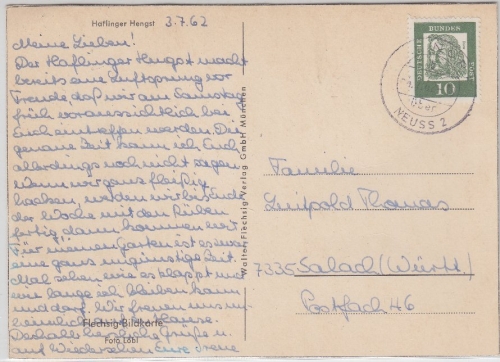 Haflinger Hengst
3.7.62
Meine Lieben!
Der Haflinger Hengst macht
bereits eine Luftsprung vor
Freude daß wir am Samstag
früh voraussichtlich bei
Euch eintreffen werden. Die
genaue Zeit kann ich Euch
allerdings noch nicht sagen
Wenn wir ganz fleißig
hacken, werden wir bis Ende
der Woche mit den Rüben
fertig dann kommen wir.
Für meinen Garten ist es zwar
eine ganz ungünstige Zeit.
Mal sehen wie es klappt und
wie lange ich bleiben kann
und darf. Wir freuen uns
Deshalb herzliche Grüße u.
auf Wiedersehen Eure Irene
Flechsig-Bildkarte
Foto Löbl
Walter Flechsig Verlag GmbH München
DEUTSCHE BUNDESPOST
10
NEUSS 2
Familie
Luitpold Thomas
7335 Salach (Württ)
Postfach 46